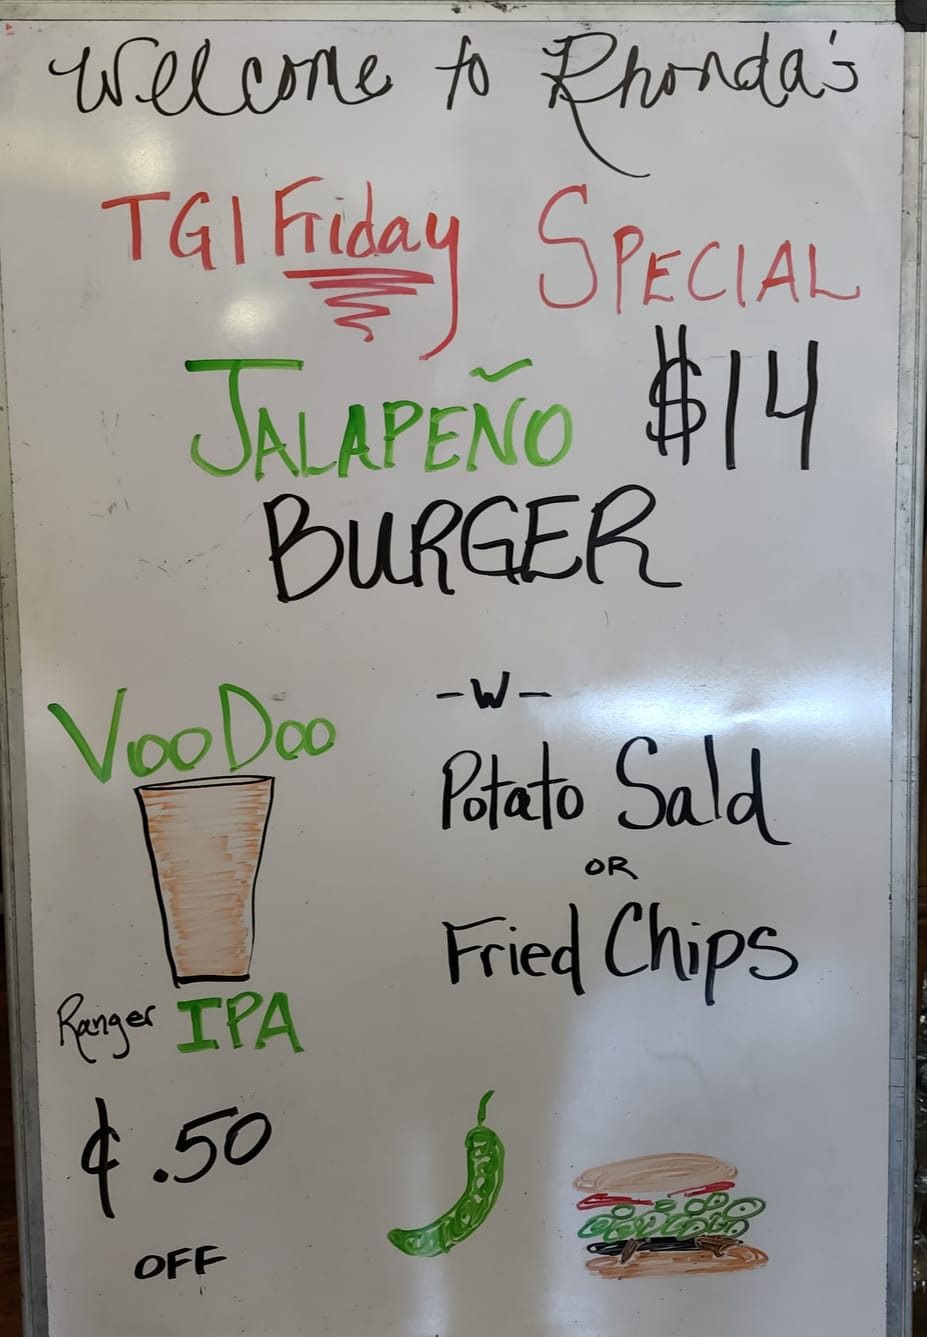 Welcome to Rhonda's
TGI Friday Special
JALAPEÑO $14
BURGER
VooDoo
Ranger IPA
¢ .50
OFF
-W-
Potato Sald
OR
Fried Chips